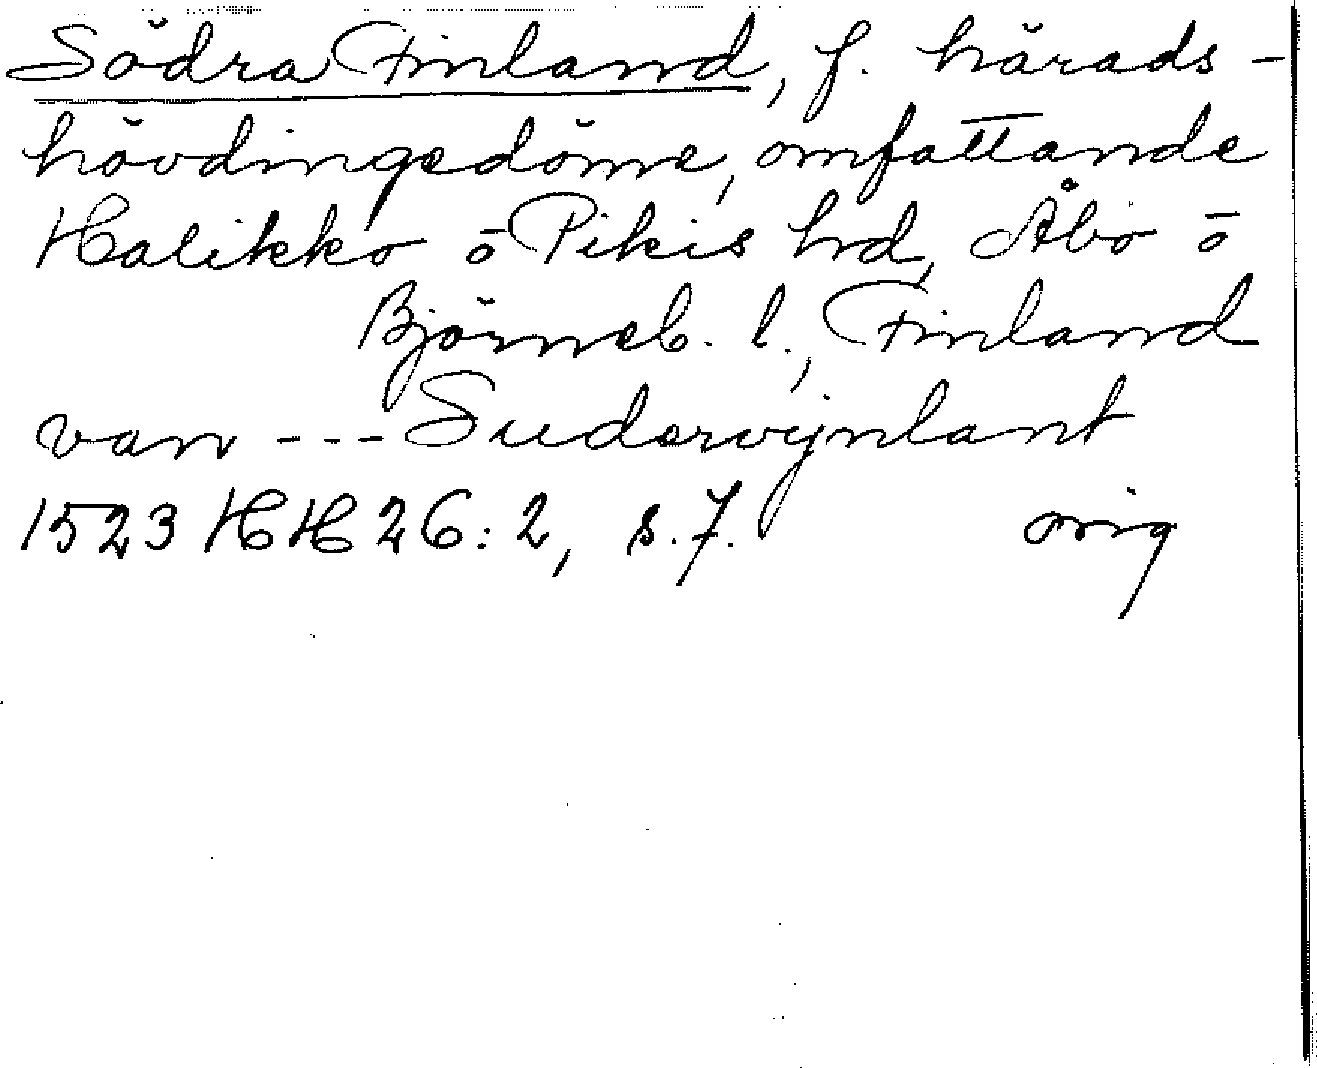 Södra Finland, f. härads-
hövdingedöme, omfattande
Halikko o Pikis hd, Åbo o
Björneb. l., Finland
van --- Sudervijnlant
1523 HH 26:2, s. 7. orig